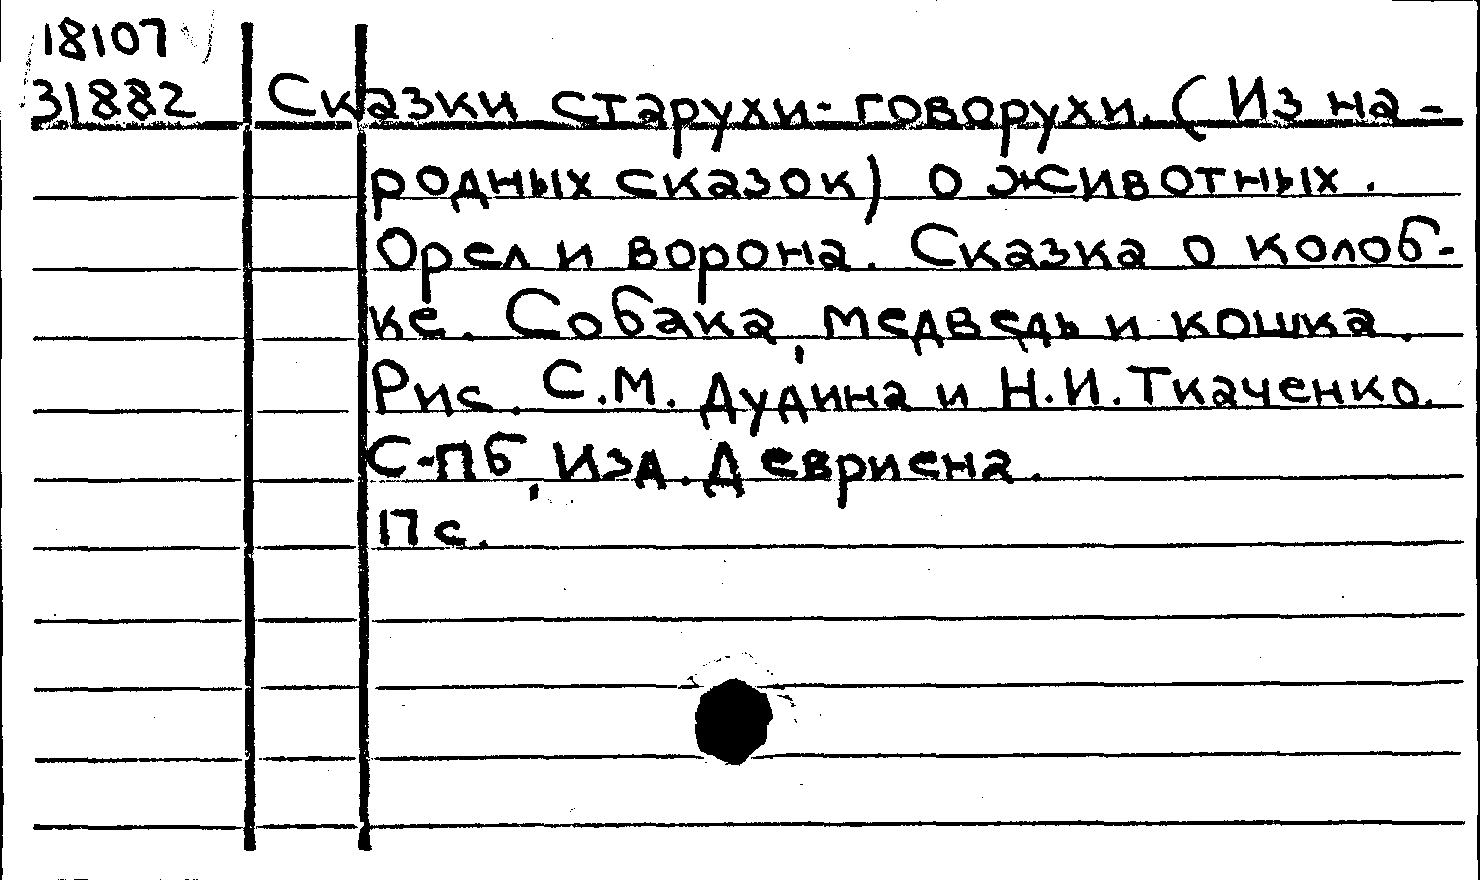 18107
31882 Сказки старухи-говорухи. (Из на-
родных сказок) о животных.
Орел и ворона. Сказка о колоб-
ке. Собака, медведь и кошка.
Рис. С.М. Дудина и Н.И. Ткаченко.
С-Пб, Изд. Девриена.
17 с.